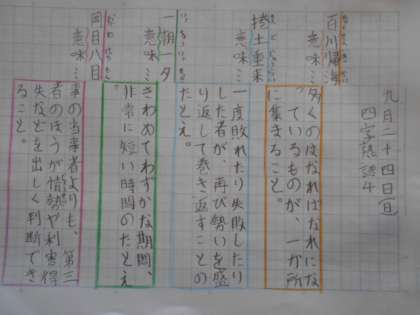 九月二十四日(日)
四字熟語4
百川帰海
意味…
多くのはなればなれにな
っているものが、一か所
に集まること。
捲土重来
意味…
一度敗れたり失敗したり
した者が、再び勢いを盛
り返して巻き返すことの
たとえ。
一朝一夕
意味…
きわめてわずかな期間、
非常に短い時間のたとえ
岡目八目
意味…
事の当事者よりも、第三
者のほうが情勢や利害得
失などを正しく判断でき
ること。